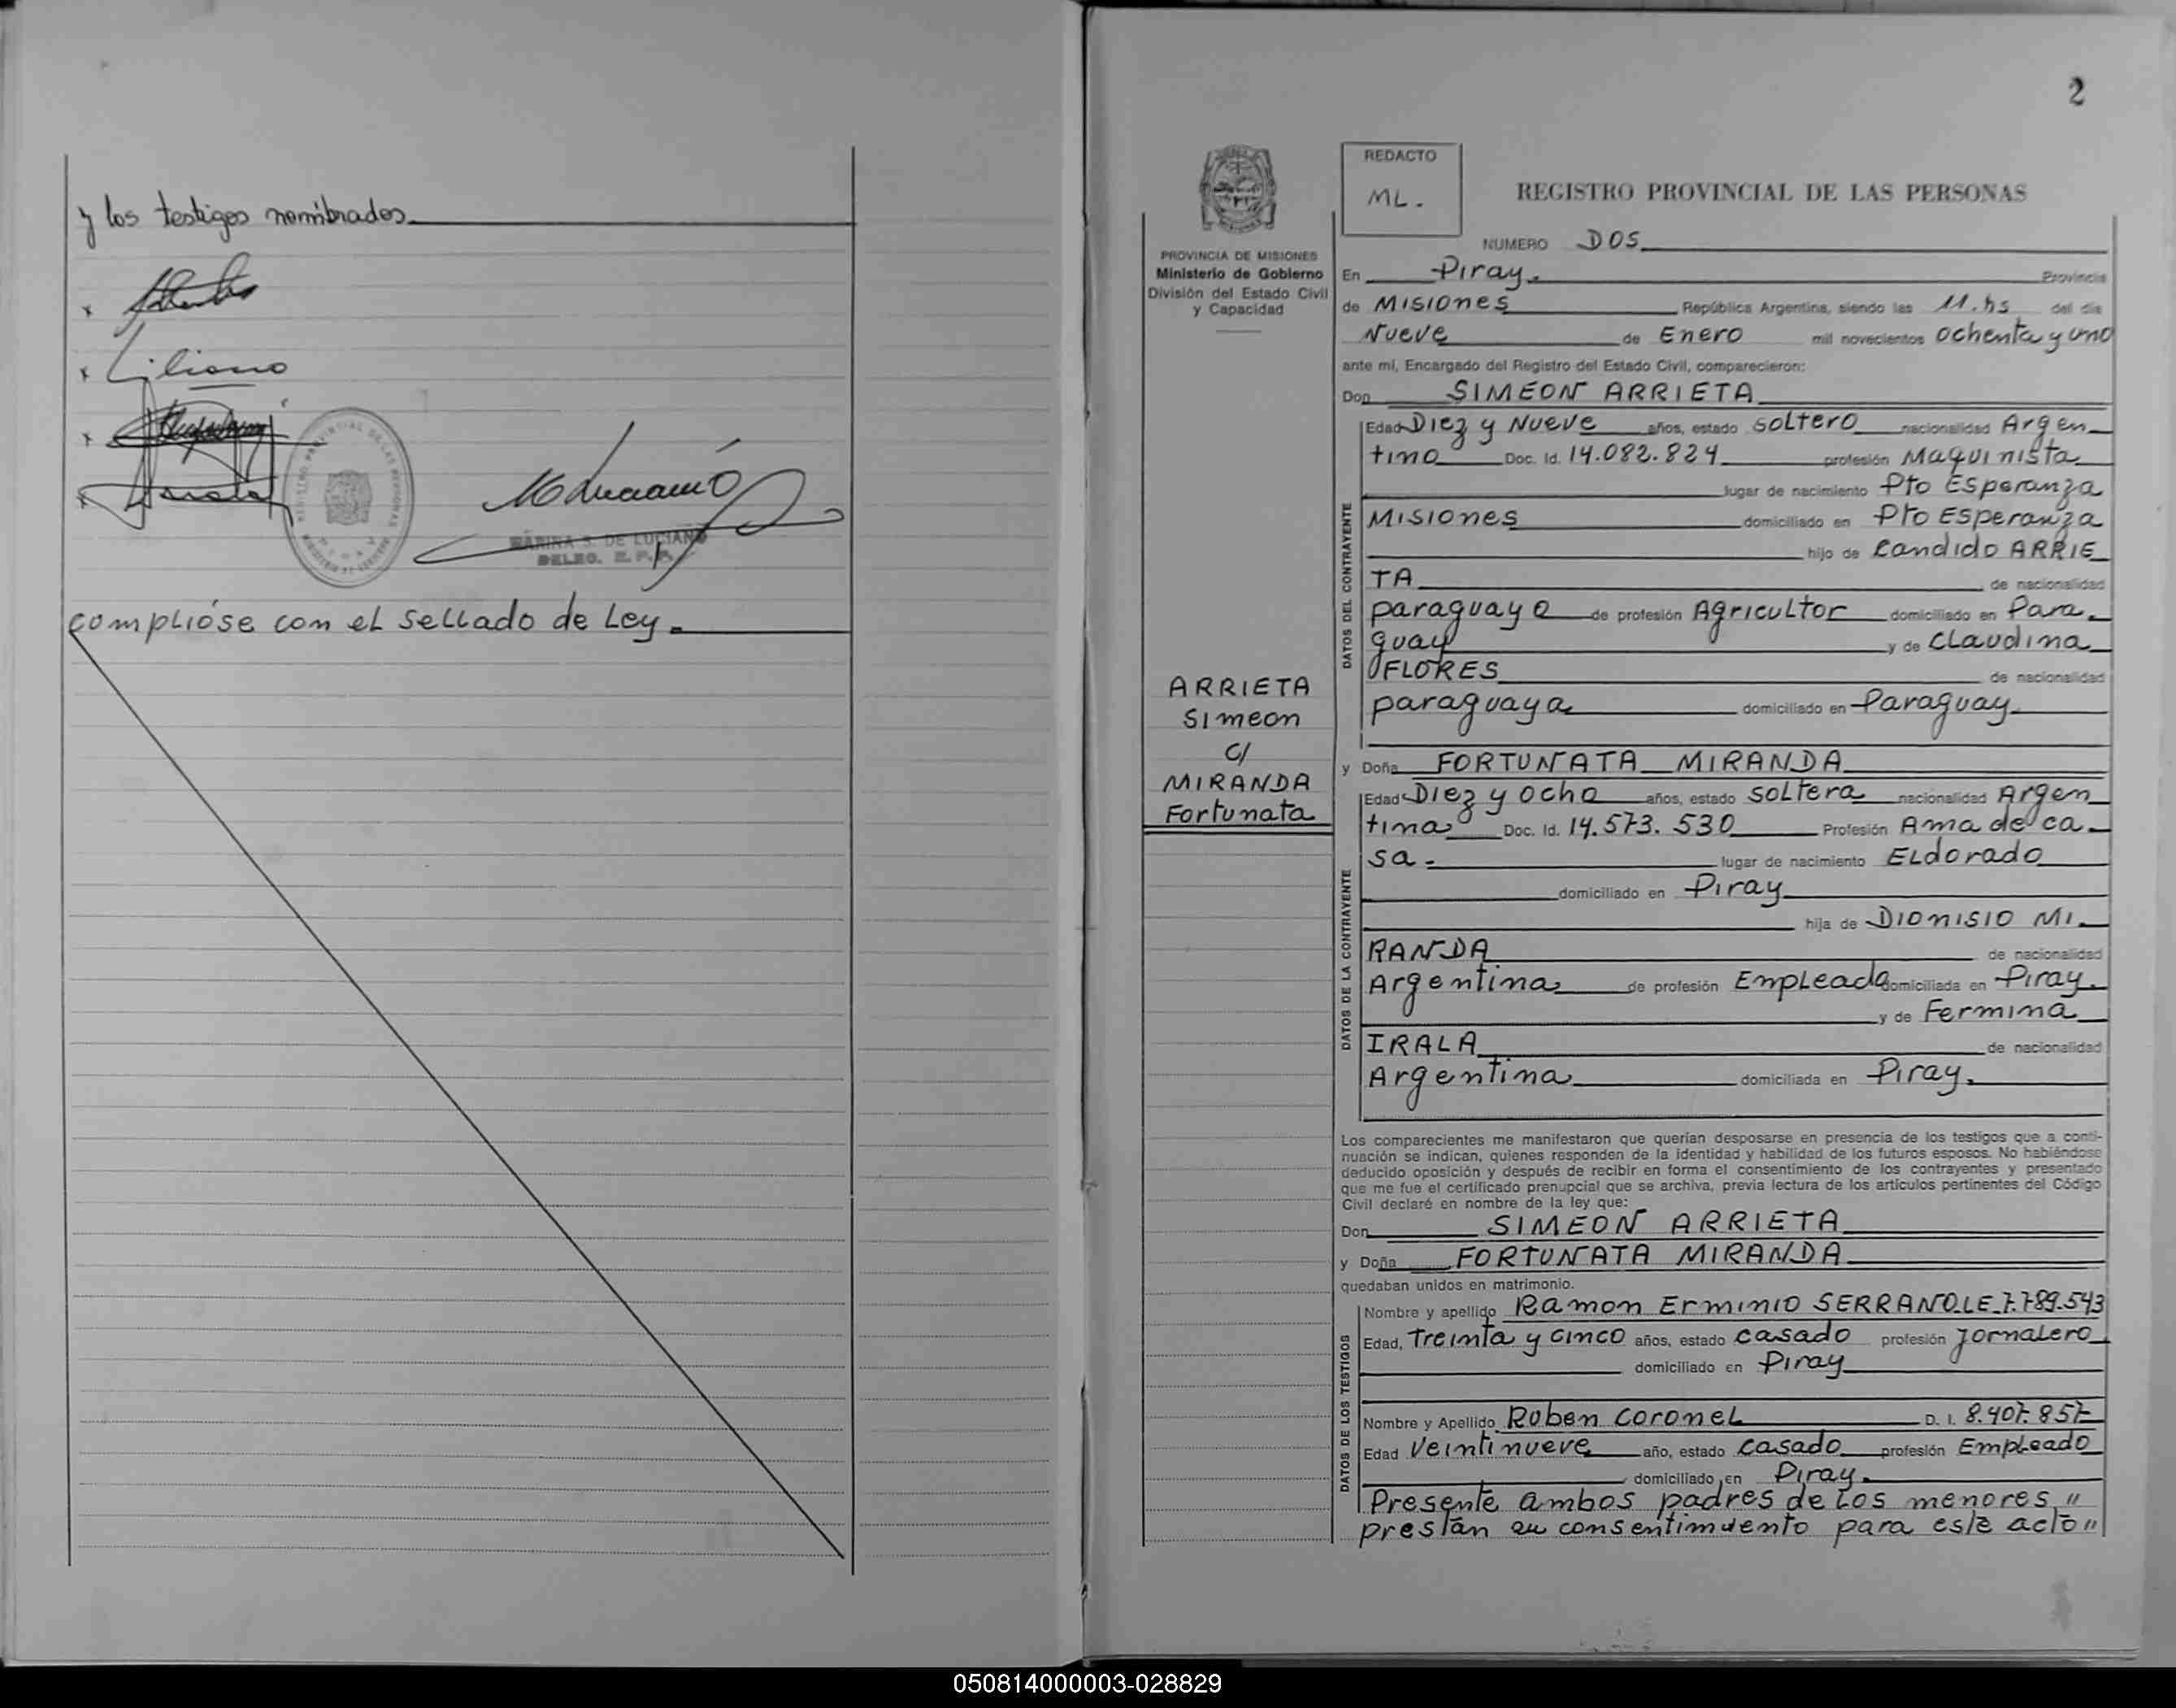 y los testigos nombrados
Liliano
MARINA S. DE LUCIANO
DELEG. E. P. P.
complióse con el sellado de Ley.
2
REDACTO
ML.
REGISTRO PROVINCIAL DE LAS PERSONAS
PROVINCIA DE MISIONES
Ministerio de Gobierno
División del Estado Civil
y Capacidad
ARRIETA
Simeon
C/
MIRANDA
Fortunata
NUMERO DOS
En Piray. Provincia
de Misiones República Argentina, siendo las 11.hs del día
Nueve de Enero mil novecientos ochenta y uno
ante mí, Encargado del Registro del Estado Civil, comparecieron:
Don SIMEON ARRIETA
DATOS DEL CONTRAYENTE
Edad Diez y Nueve años, estado soltero nacionalidad Argen
tino Doc. Id. 14.082.824 profesión Maquinista
lugar de nacimiento Pto Esperanza
Misiones domiciliado en Pto Esperanza
hijo de Candido ARRIE
TA de nacionalidad
paraguaya de profesión Agricultor domiciliado en Para
guay y de Claudina
FLORES de nacionalidad
paraguaya domiciliado en Paraguay
y Doña FORTUNATA MIRANDA
DATOS DE LA CONTRAYENTE
Edad Diez y ocho años, estado soltera nacionalidad Argen
tina Doc. Id. 14.573.530 Profesión Ama de ca
sa. lugar de nacimiento Eldorado
domiciliado en Piray
hija de Dionisio MI
RANDA de nacionalidad
Argentina de profesión Empleado domiciliada en Piray.
y de Fermina
IRALA de nacionalidad
Argentina domiciliada en Piray.
Los comparecientes me manifestaron que querían desposarse en presencia de los testigos que a conti-
nuación se indican, quienes responden de la identidad y habilidad de los futuros esposos. No habiéndose
deducido oposición y después de recibir en forma el consentimiento de los contrayentes y presentado
que me fue el certificado prenupcial que se archiva, previa lectura de los artículos pertinentes del Código
Civil declaré en nombre de la ley que:
Don SIMEON ARRIETA
y Doña FORTUNATA MIRANDA
quedaban unidos en matrimonio.
DATOS DE LOS TESTIGOS
Nombre y apellido Ramon Erminio SERRANO LE.7.789.543
Edad, Treinta y cinco años, estado casado profesión Jornalero
domiciliado en Piray
Nombre y Apellido Ruben Coronel D. I. 8.407.857
Edad Veintinueve año, estado casado profesión Empleado
domiciliado en Piray.
Presente ambos padres de los menores "
prestan su consentimiento para este acto "
050814000003-028829